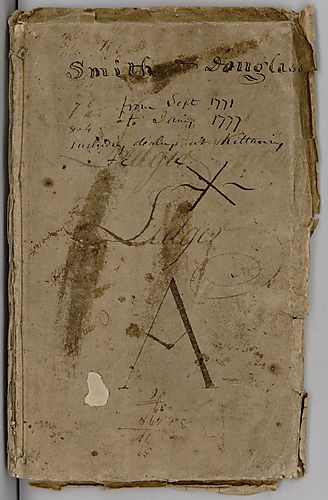 Smith & Douglass
from Sept 1771
to Jany 1777
including dealings at Kittaning
&c
Leager
Leager
A